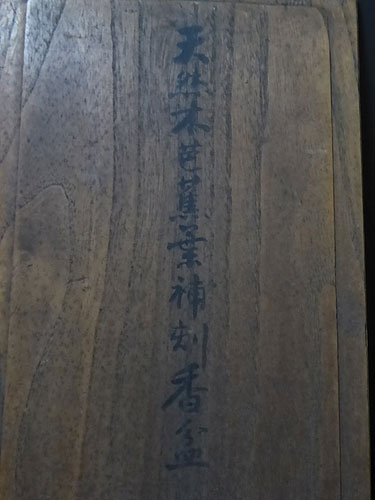 天然木芭蕉葉補刻香盆